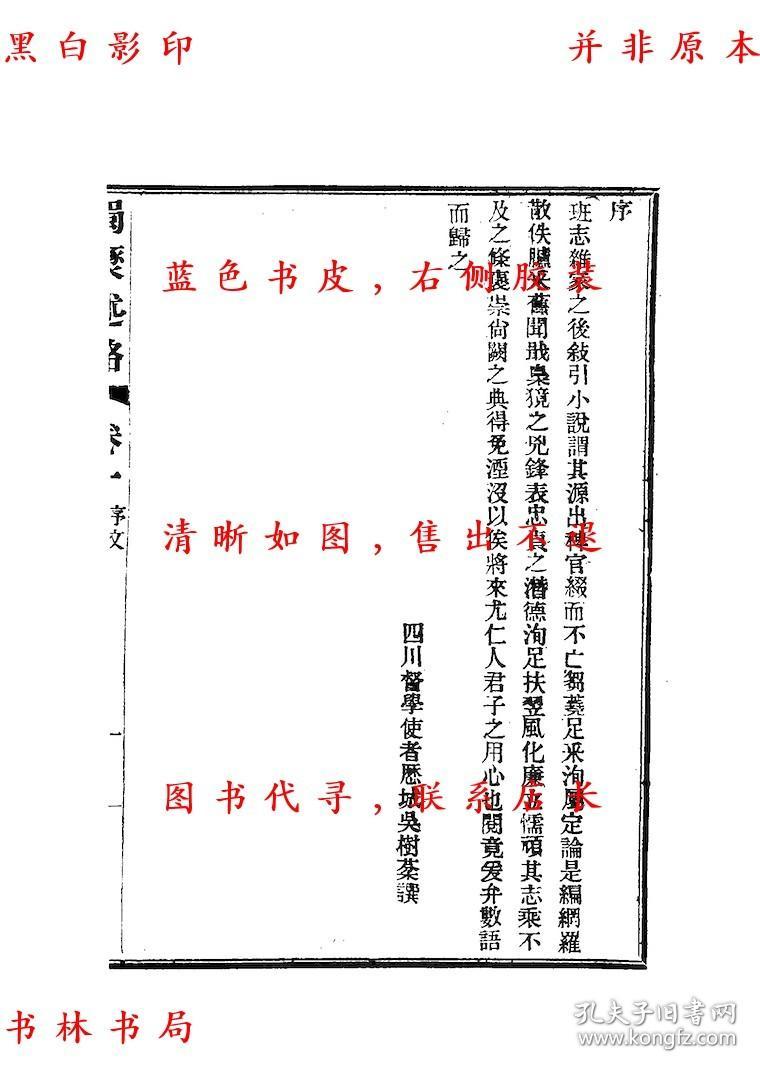 黑白影印
并非原本
序
班志雜家之後敍引小說謂其源出稗官綴而不亡芻蕘足采洵屬定論是編網羅
散佚臚采舊聞戕梟獍之兇鋒表忠貞之潛德洵足扶翌風化廉立懦頑其志乘不
及之條襃崇尙闕之典得免湮沒以俟將來尤仁人君子之用心也閱竟爰弁數語
而歸之
四川督學使者歷城吳樹棻譔
蜀龜述略
卷一
序文
一
蓝色书皮,右侧胶装
清晰如图,售出不退
图书代寻,联系店长
书林书局
孔夫子旧书网
www.kongfz.com